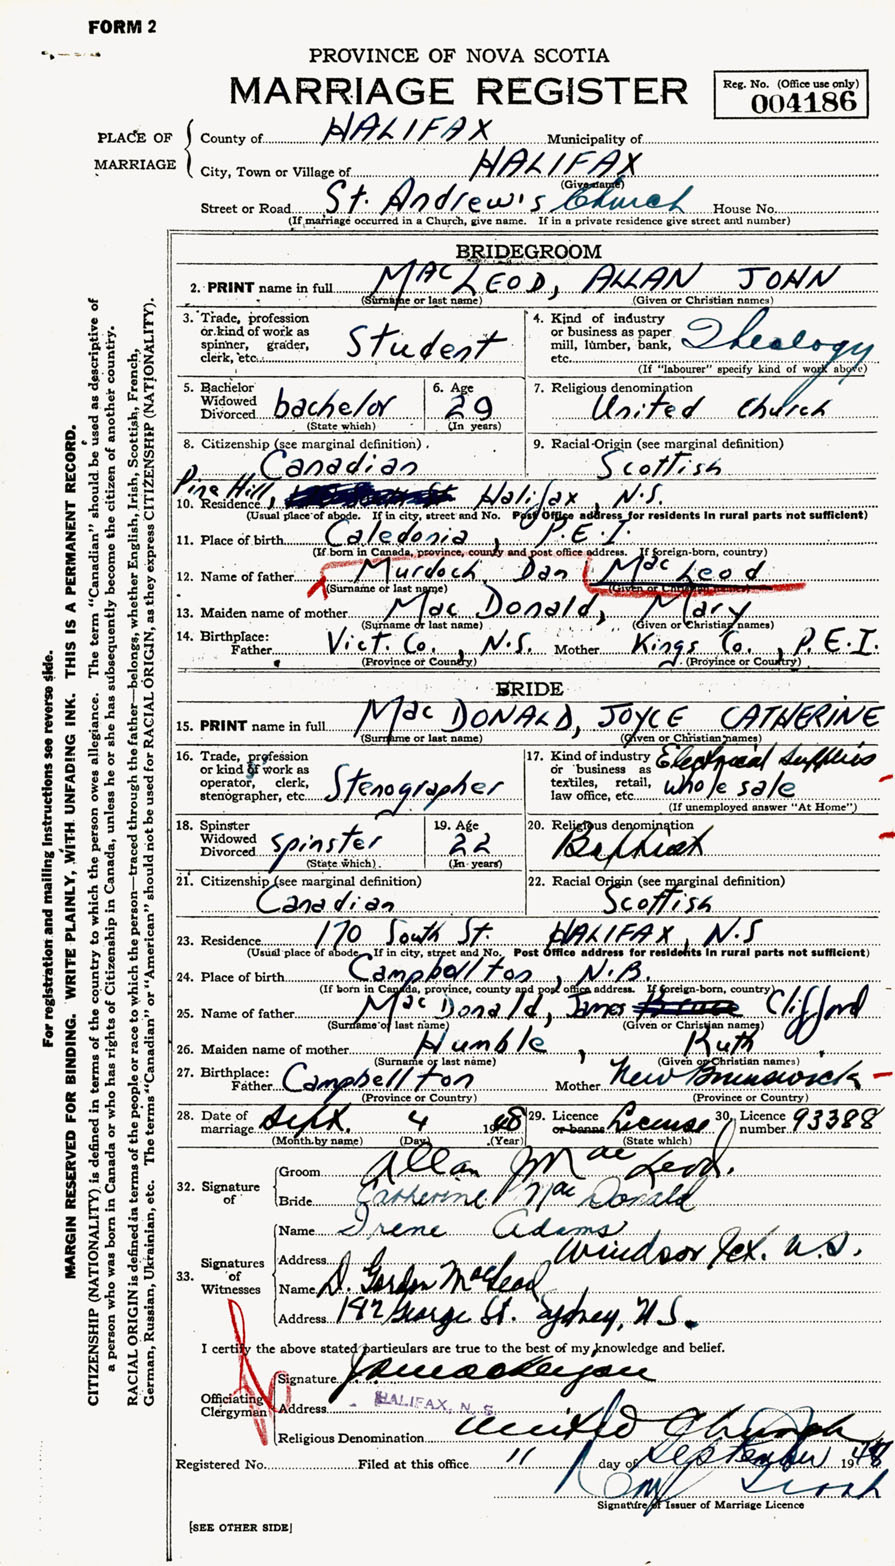 FORM 2
PROVINCE OF NOVA SCOTIA
MARRIAGE REGISTER
Reg. No. (Office use only)
004186
PLACE OF MARRIAGE
County of HALIFAX Municipality of
City, Town or Village of HALIFAX
(Give name)
Street or Road St. Andrew's Church House No.
(If marriage occurred in a Church, give name. If in a private residence give street and number)
BRIDEGROOM
2. PRINT name in full MacLEOD, ALLAN JOHN
(Surname or last name) (Given or Christian names)
3. Trade, profession or kind of work as spinner, grader, clerk, etc. Student
4. Kind of industry or business as paper mill, lumber, bank, etc. Theology
(If "labourer" specify kind of work above)
5. Bachelor Widowed Divorced bachelor
(State which)
6. Age 29
(In years)
7. Religious denomination
United Church
8. Citizenship (see marginal definition)
Canadian
9. Racial Origin (see marginal definition)
Scottish
10. Residence Pine Hill, Halifax, N.S.
(Usual place of abode. If in city, street and No. Post Office address for residents in rural parts not sufficient)
11. Place of birth Caledonia, P.E.I.
(If born in Canada, province, county and post office address. If foreign-born, country)
12. Name of father Murdoch Dan MacLeod
(Surname or last name) (Given or Christian names)
13. Maiden name of mother MacDonald, Mary
(Surname or last name) (Given or Christian names)
14. Birthplace: Father Vict. Co., N.S. Mother Kings Co., P.E.I.
(Province or Country) (Province or Country)
BRIDE
15. PRINT name in full MacDONALD, JOYCE CATHERINE
(Surname or last name) (Given or Christian names)
16. Trade, profession or kind of work as operator, clerk, stenographer, etc. Stenographer
17. Kind of industry or business as textiles, retail, law office, etc. Electrical Supplies whole sale
(If unemployed answer "At Home")
18. Spinster Widowed Divorced spinster
(State which)
19. Age 22
(In years)
20. Religious denomination
Baptist
21. Citizenship (see marginal definition)
Canadian
22. Racial Origin (see marginal definition)
Scottish
23. Residence 170 South St. HALIFAX, N.S
(Usual place of abode. If in city, street and No. Post Office address for residents in rural parts not sufficient)
24. Place of birth Campbellton, N.B.
(If born in Canada, province, county and post office address. If foreign-born, country)
25. Name of father MacDonald, James Clifford
(Surname or last name) (Given or Christian names)
26. Maiden name of mother Humble, Ruth
(Surname or last name) (Given or Christian names)
27. Birthplace: Father Campbellton Mother New Brunswick
(Province or Country) (Province or Country)
28. Date of marriage Sept. 4 1948
(Month by name) (Day) (Year)
29. Licence or banns License
(State which)
30. Licence number 93388
32. Signature of
Groom Allan J MacLeod.
Bride Catherine MacDonald
33. Signatures of Witnesses
Name Irene Adams
Address Windsor Jct. N.S.
Name D. Gordon MacLeod
Address 182 George St. Sydney, N.S.
I certify the above stated particulars are true to the best of my knowledge and belief.
Officiating Clergyman
Signature
Address HALIFAX, N. S.
Religious Denomination United Church
Registered No. Filed at this office 11 day of September 1948
Signature of Issuer of Marriage Licence
[SEE OTHER SIDE]
For registration and mailing instructions see reverse side.
MARGIN RESERVED FOR BINDING. WRITE PLAINLY, WITH UNFADING INK. THIS IS A PERMANENT RECORD.
CITIZENSHIP (NATIONALITY) is defined in terms of the country to which the person owes allegiance. The term "Canadian" should be used as descriptive of
a person who was born in Canada or who has rights of Citizenship in Canada, unless he or she has subsequently become the citizen of another country.
RACIAL ORIGIN is defined in terms of the people or race to which the person—traced through the father—belongs, whether English, Irish, Scottish, French,
German, Russian, Ukrainian, etc. The terms "Canadian" or "American" should not be used for RACIAL ORIGIN, as they express CITIZENSHIP (NATIONALITY).